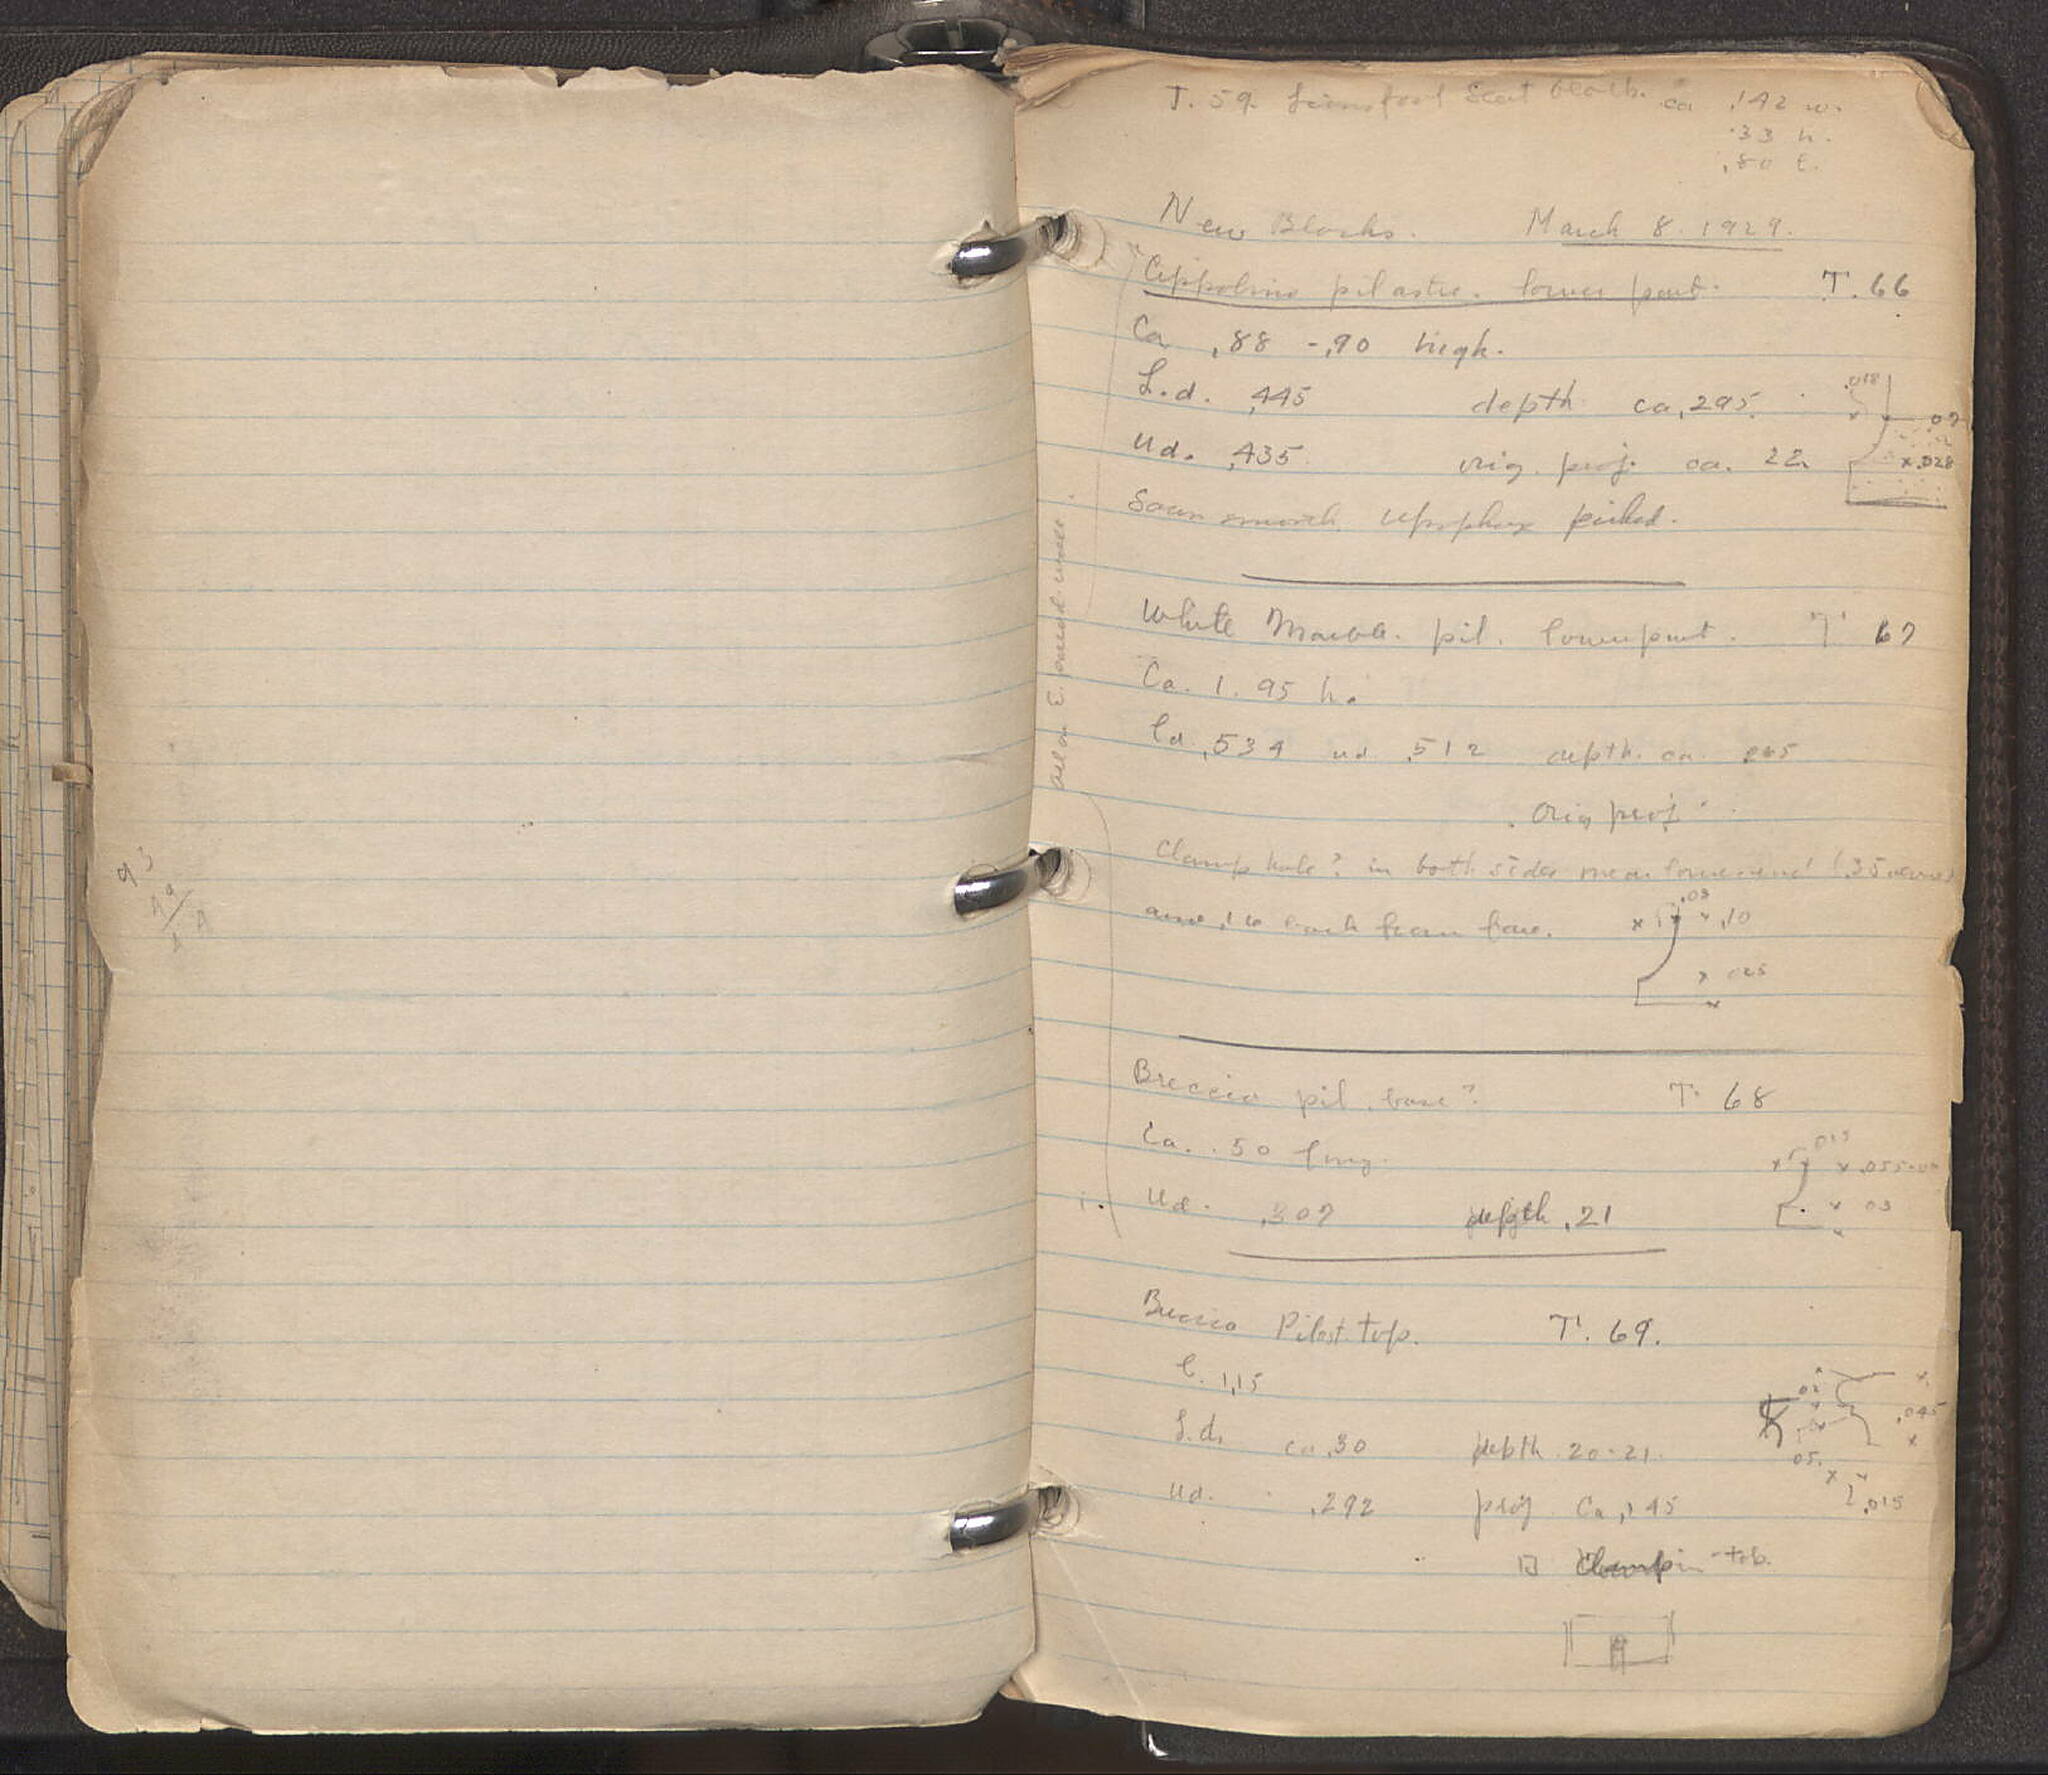 93
T. 59 Seat block. ca .142 w.
.33 h.
.80 l.
New Blocks. March 8. 1929.
Cippolino pilastre. lower part. T. 66
Ca ,88 -,90 high.
L.d. ,445 depth ca ,295.
.018
.07
ud. ,435 orig. proj. ca. 22.
x .028
smooth. Apophyge picked.
all on E. parod. wall.
White Marble. pil. lower part. T 67
Ca. 1.95 h.
ld ,534 ud. ,512 depth. ca.
Orig proj.
Clamp hole? in both sides near lower end (.35
and .16 back from face. x .03 .10
025
Breccia pil. base? T. 68
Ca. .50 long.
.015
x .055
ud. .307 depth ,21
x 03
Breccia Pilast. top. T. 69.
l. 1,15
02
.045
L.d. ca .30 depth .20-21.
05.
ud. .292 proj Ca ,145
.015
Clamp in top.